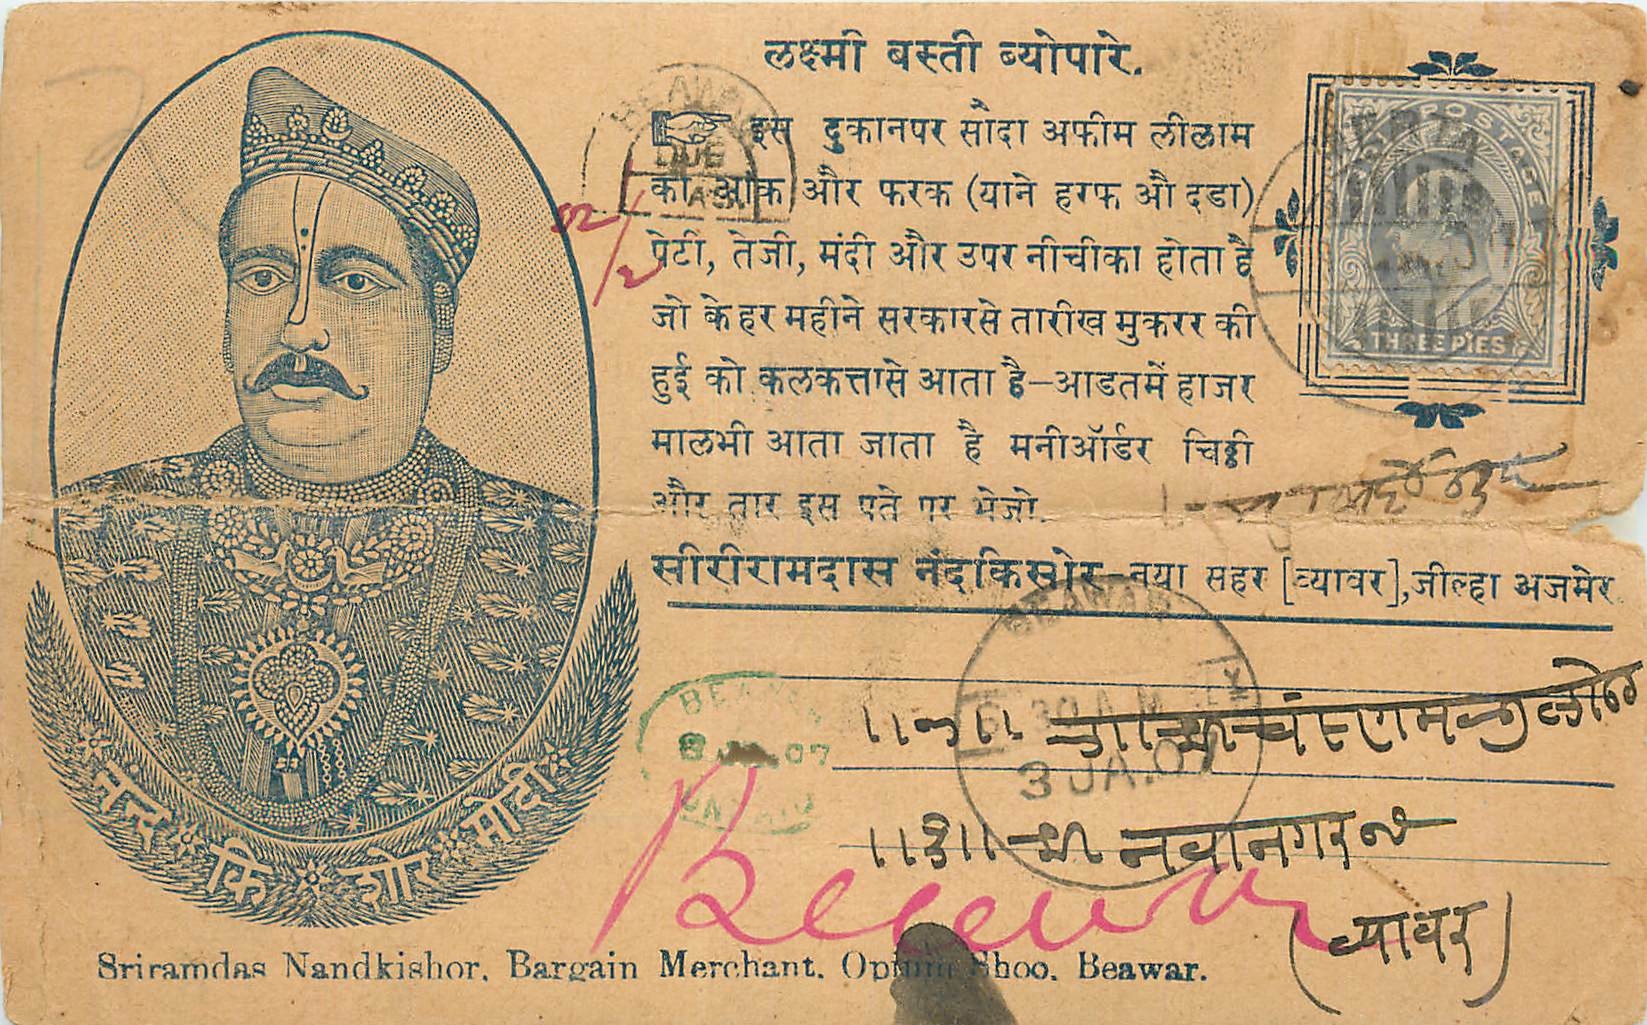 लक्ष्मी बस्ती ब्योपारे.
इस दुकानपर सौदा अफीम लीलाम
का आंक और फरक (याने हरफ औ दडा)
पेटी, तेजी, मंदी और उपर नीचीका होता है
जो के हर महीने सरकारसे तारीख मुकरर की
हुई को कलकत्तासे आता है–आडतमें हाजर
मालभी आता जाता है मनीऑर्डर चिठ्ठी
और तार इस पते पर भेजो.
सीरीरामदास नंदकिसोर–नया सहर [ब्यावर],जील्हा अजमेर.
POSTAGE
THREE PIES
BEAWAR
DUE
BEAWAR
6.30 A.M.
3 JA.07
BEAWAR
07
UNPAID
नवानगर
(ब्यावर)
Beawar
नन्द कि शोर मोदी
Sriramdas Nandkishor, Bargain Merchant, Opium Shoo, Beawar.